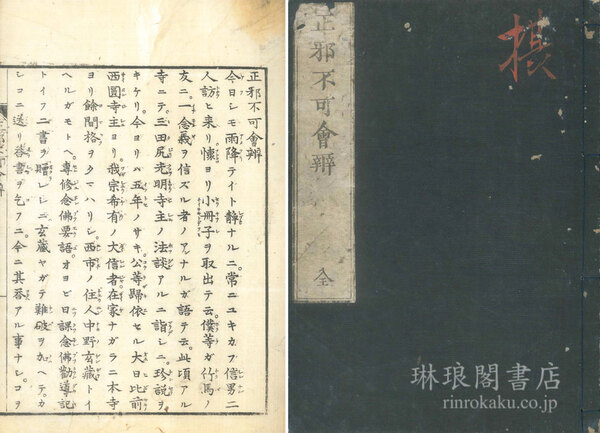 正邪不可會辨
今日シモ雨降テイト静ナルニ常ニユキカフ信男二
人訪ヒ来リ懐ヨリ小冊子ヲ取出テ云僕等ガ竹馬ノ
友ニ一念義ヲ信ズル者ノアンナルガ語テ云此頃アル
寺ニテ三田尻光明寺主ノ法談アルニ詣シニ珍説ヲ
キケリ今ヨリハ五年ノサキ公等歸依セル大日比前
西圓寺主ヨリ我宗希有ノ大信者在家ナガラニ本寺
ヨリ餘間格ヲクハリシ西市ノ住人中野玄藏トイ
ヘルガモトヘ專修念佛要語オヨビ日課念佛勸導記
トイフ二書ヲ贈レシニ玄藏ヤガテ難破ヲ加ヘテカ
シコニ送リ答書ヲ乞フニ今ニ其答アル事ナシコヲ
正邪不可會辨
全
琳琅閣書店
rinrokaku.co.jp